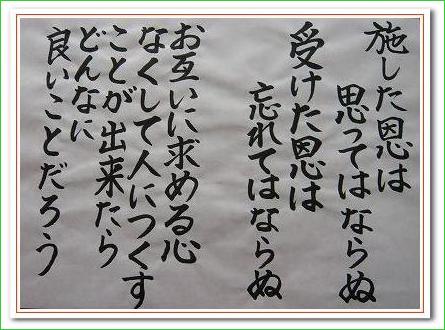 施した恩は
思ってはならぬ
受けた恩は
忘れてはならぬ
お互いに求める心
なくして人につくす
ことが出来たら
どんなに
良いことだろう